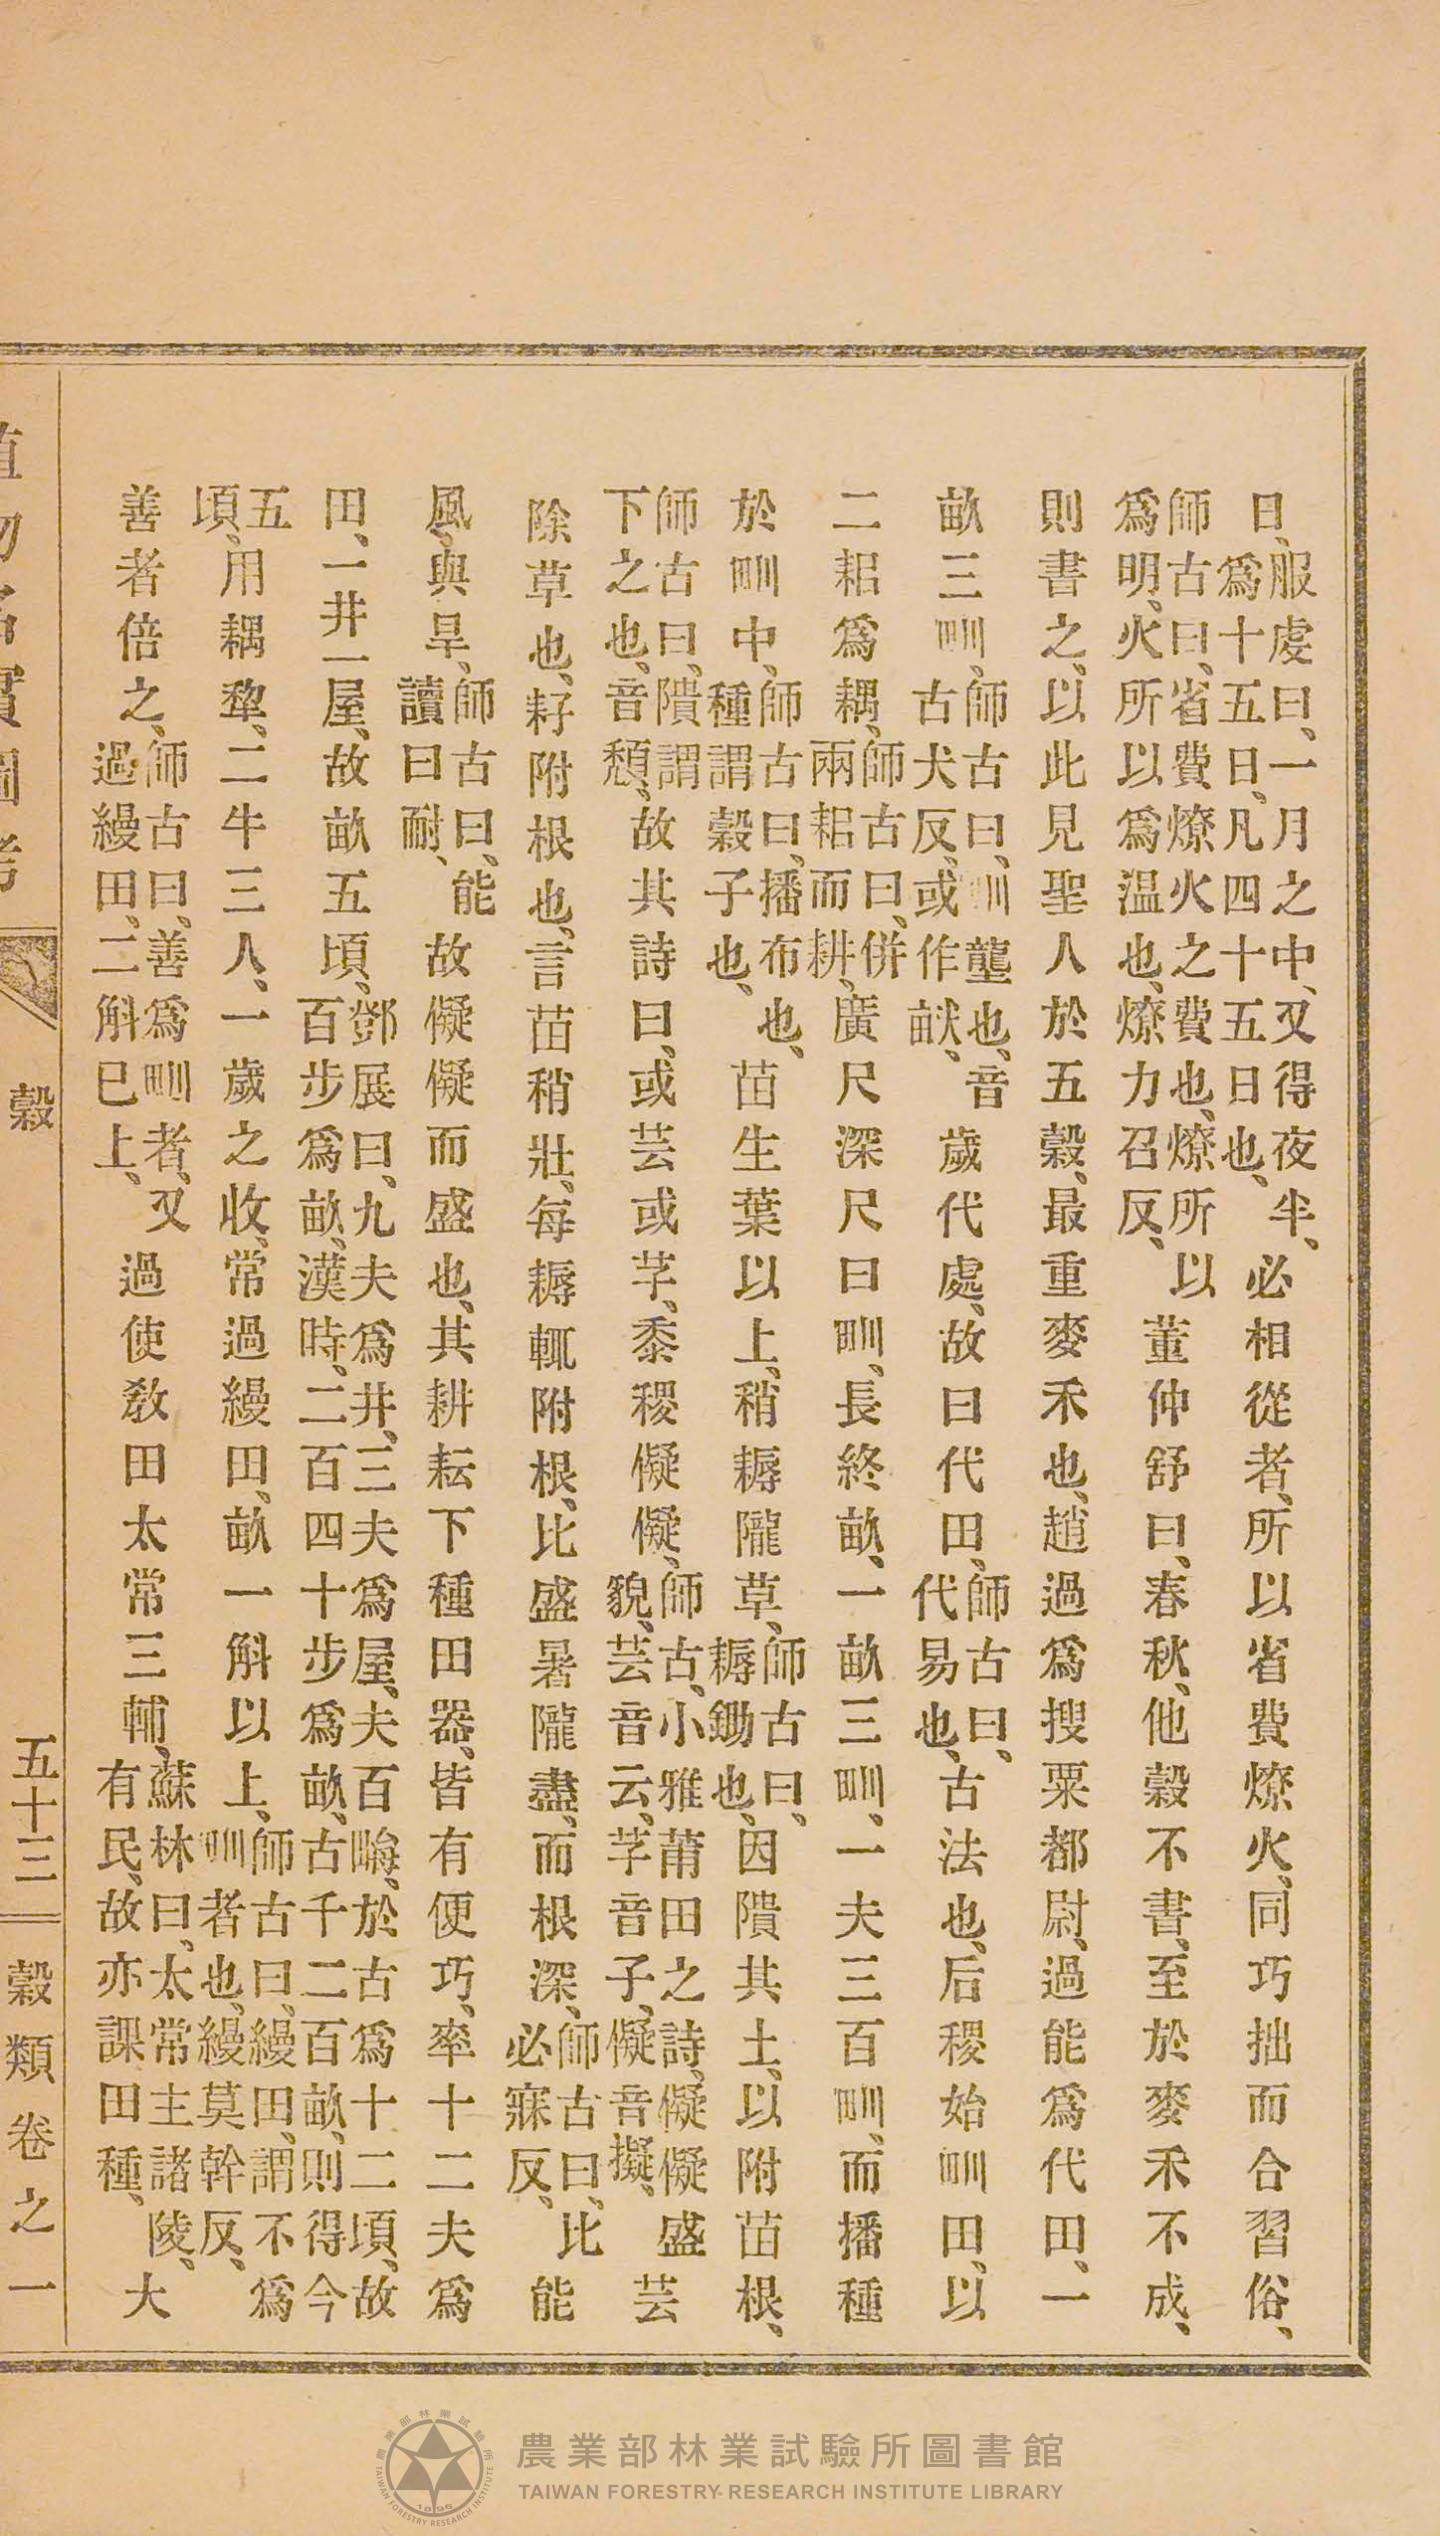 日、服虔曰、一月之中、又得夜半、爲十五日、凡四十五日也、必相從者、所以省費燎火、同巧拙而合習俗、
師古曰、省費燎火之費也、燎所以爲明、火所以爲温也、燎力召反、董仲舒曰、春秋、他穀不書、至於麥禾不成、
則書之、以此見聖人於五穀、最重麥禾也、趙過爲搜粟都尉、過能爲代田、一
畝三甽、師古曰、甽壟也、音古犬反、或作畎、歲代處、故曰代田、師古曰、代易也、古法也、后稷始甽田、以
二耜爲耦、師古曰、併兩耜而耕、廣尺深尺曰甽、長終畝、一畝三甽、一夫三百甽、而播種
於甽中、師古曰、播布也、種謂穀子也、苗生葉以上、稍耨隴草、師古曰、耨鋤也、因隤其土、以附苗根、
師古曰、隤謂下之也、音頹、故其詩曰、或芸或芓、黍稷儗儗、師古、小雅莆田之詩、儗儗盛貌、芸音云、芓音子、儗音擬、芸
除草也、耔附根也、言苗稍壯、每耨輒附根、比盛暑隴盡、而根深、師古曰、比必寐反、能
風與旱、師古曰、能讀曰耐、故儗儗而盛也、其耕耘下種田器、皆有便巧、率十二夫爲
田、一井一屋、故畝五頃、鄧展曰、九夫爲井、三夫爲屋、夫百畮、於古爲十二頃、故百步爲畝、漢時、二百四十步爲畝、古千二百畝、則得今
五頃、用耦犂、二牛三人、一歲之收、常過縵田、畝一斛以上、師古曰、縵田、謂不爲甽者也、縵莫幹反、
善者倍之、師古曰、善爲甽者、又過縵田、二斛已上、過使敎田太常三輔、蘇林曰、太常主諸陵、有民、故亦課田種、大
穀 五十三 穀類卷之一